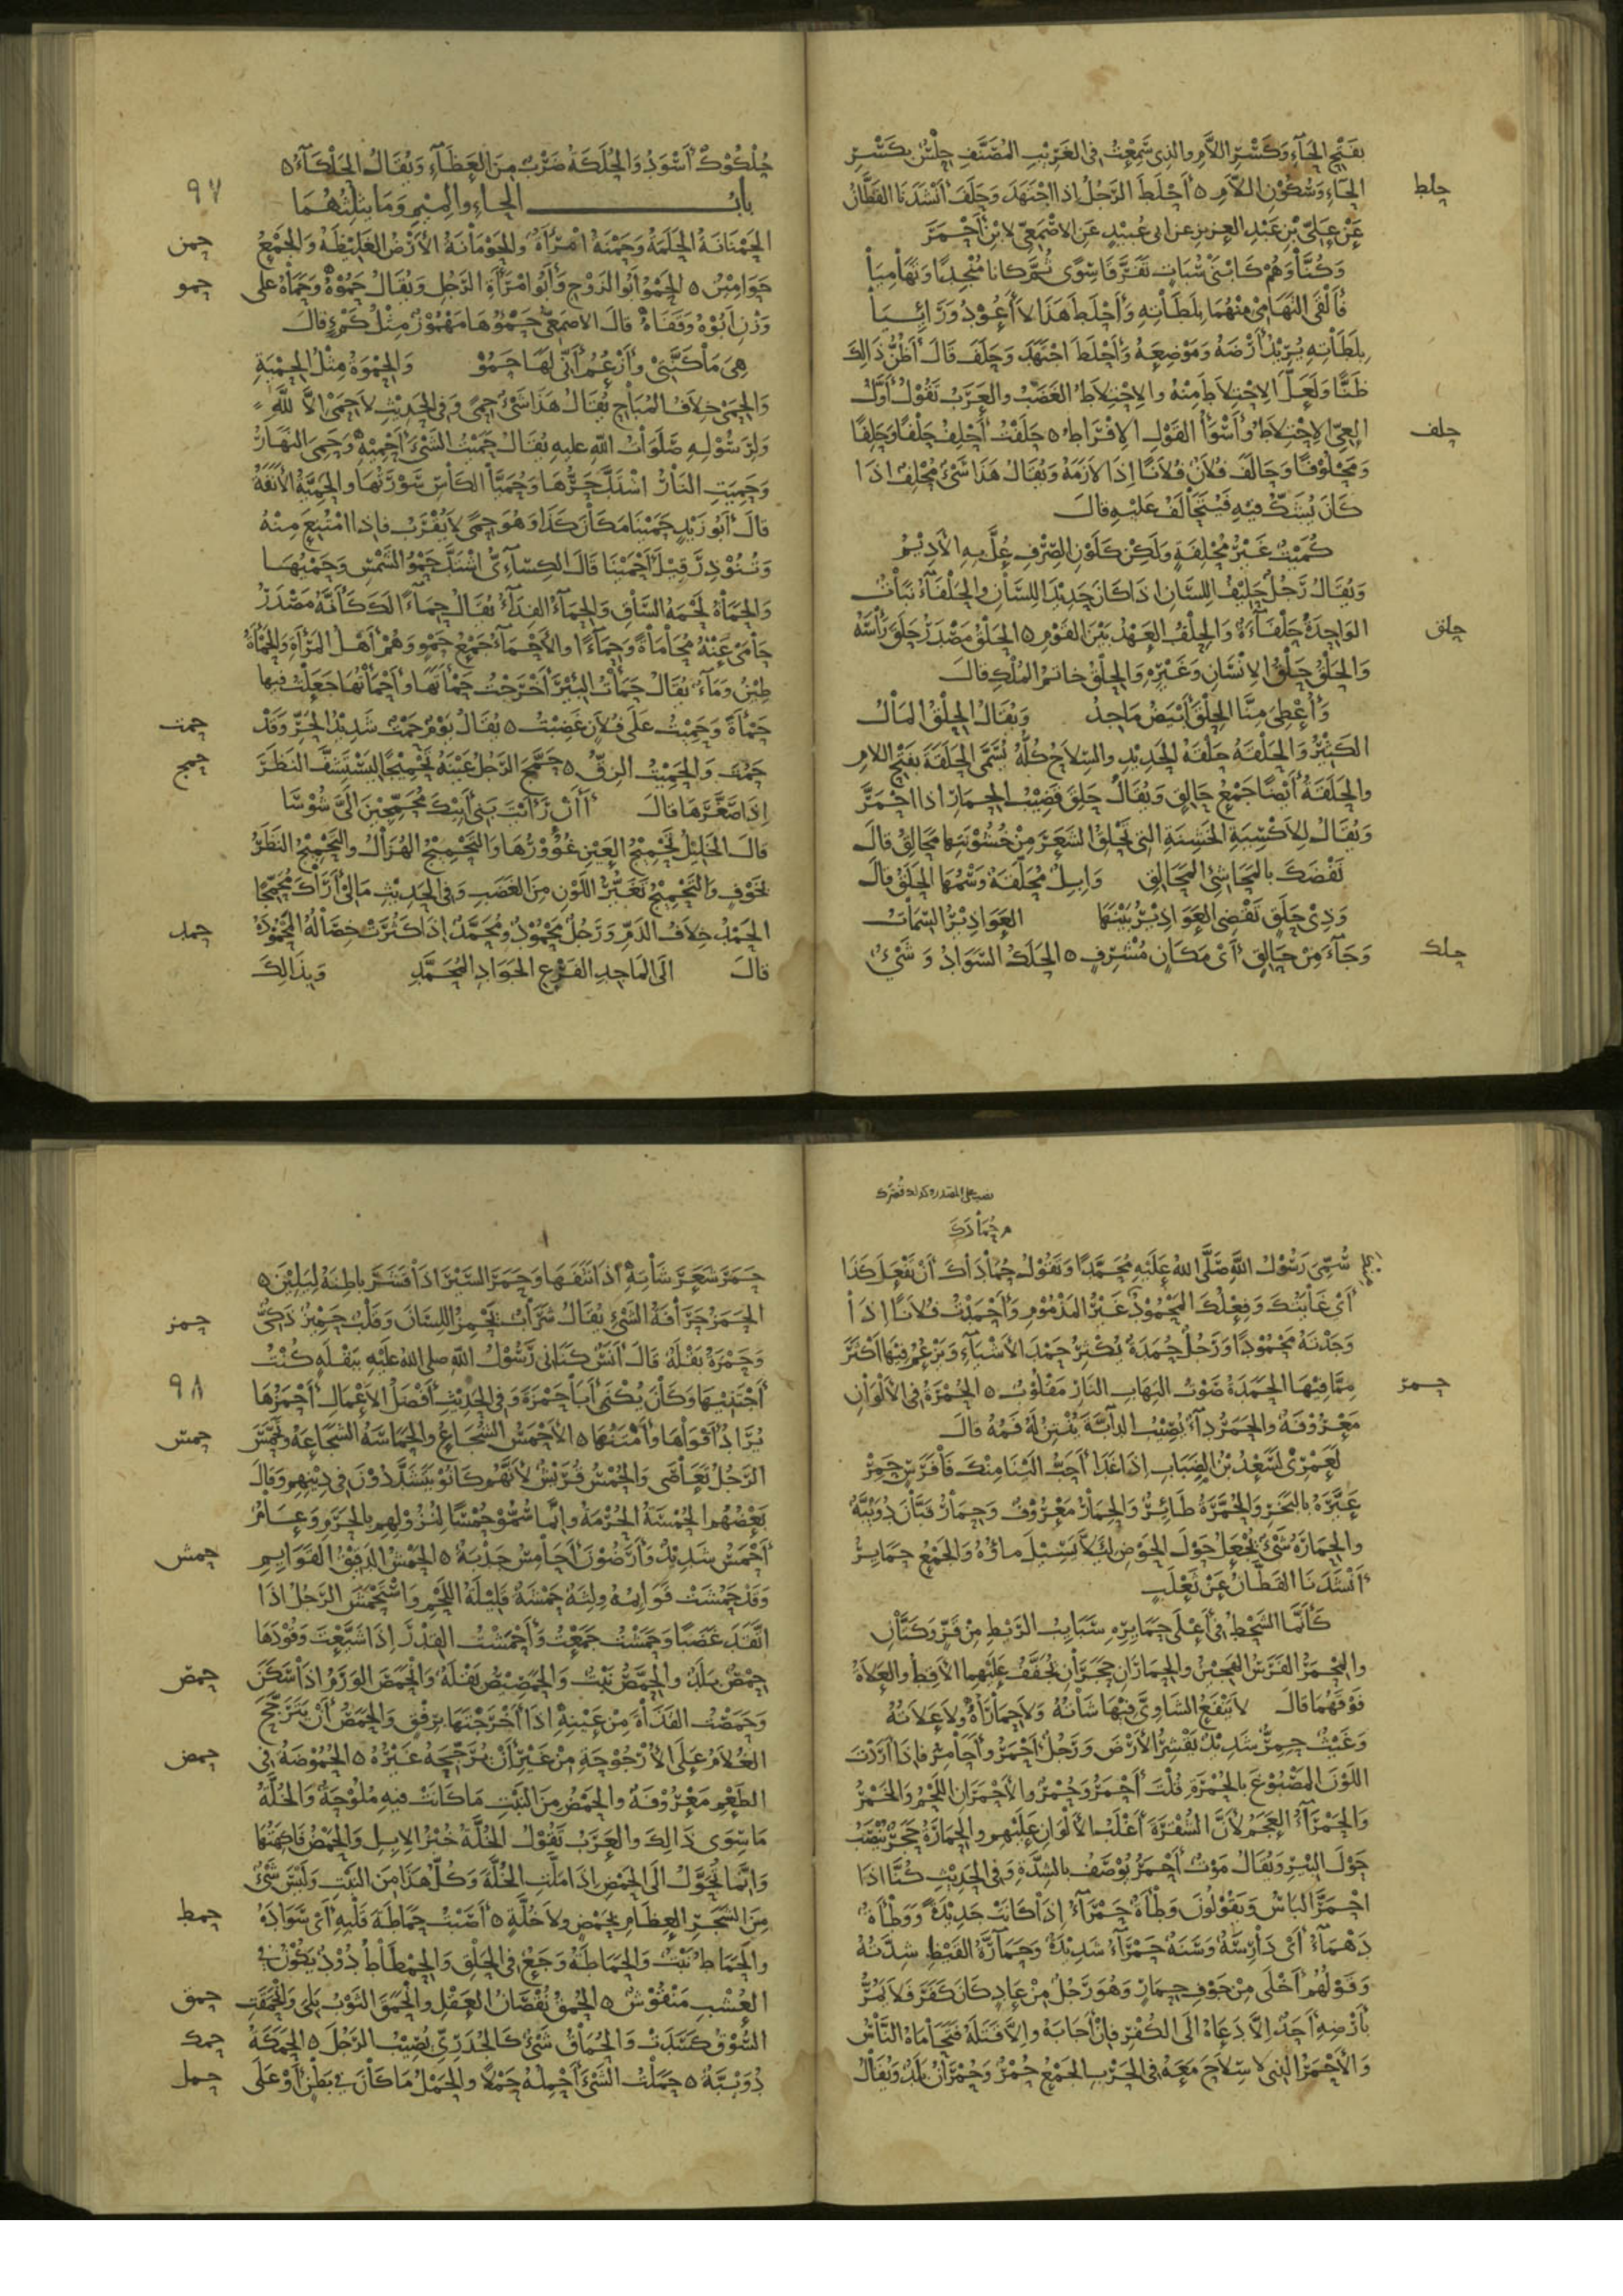 بفَتْحِ الحَاءِ وَكَسْرِ اللَّامِ والذي سَمِعْتُ في الغَرِيْبِ المُصَنَّفِ حِلْسٌ بِكَسْرِ
الحَاءِ وَسُكُوْنِ اللَّامِ ٥ أَحْلَطَ الرَّجُلُ إذا اجْتَهَدَ وَحَلَفَ أَنْشَدَنَا القَطَّانُ
حلط
عَنْ عَلِيِّ بْنِ عَبْدِ العَزِيزِ عن ابي عُبَيْدٍ عَنِ الأَصْمَعِيِّ لابْنِ أَحْمَرَ
وَكُنَّا وَهُمْ كَابْنَيْ سُبَاتٍ تَفَرَّقَا سِوًى ثُمَّ كانا مُنْجِدًا وَتَهَامِيَا
فَأَلْقَى التَّهَامِيْ مِنْهُمَا بِلَطَاتِهِ وَأَحْلَطَ هَذَا لَا أَعُوْدُ وَرَائِيَا
بِلَطَاتِهِ يُرِيْدُ أَرْضَهُ وَمَوْضِعَهُ وَأَحْلَطَ اجْتَهَدَ وَحَلَفَ قَالَ أَظُنُّ ذَالِكَ
ظَنًّا وَلَعَلَّ الِاحْتِلَاطَ مِنْهُ والِاحْتِلَاطُ الغَضَبُ والعَرَبُ تَقُوْلُ أَوَّلُ
العِيِّ الِاحْتِلَاطُ وأَسْوَأُ القَوْلِ الِافْرَاطُ ٥ حَلَفْتُ أَحْلِفُ حَلْفًا وَحَلِفًا
حلف
وَمَحْلُوْفًا وَحَالَفَ فُلَانٌ فُلَانًا إِذَا لَازَمَهُ وَيُقَالُ هَذَا شَيْءٌ مُحْلِفٌ اذَا
كَانَ يُشَكُّ فِيْهِ فَيُتَحَالَفُ عَلَيْهِ قالَ
كُمَيْتٌ غَيْرُ مُحْلِفَةٍ وَلَكِنْ كَلَوْنِ الصِّرْفِ عُلَّ بِهِ الأَدِيْمُ
وَيُقَالُ رَجُلٌ حَلِيْفُ اللِّسَانِ اذَا كَانَ حَدِيْدَ اللِّسَانِ والحَلْفَاءُ نَبَاتٌ
الوَاحِدَةُ حَلْفَاءَةٌ وَالحِلْفُ العَهْدُ بَيْنَ القَوْمِ ٥ الحَلْقُ مَصْدَرُ حَلَقَ رَأْسَهُ
حلق
وَالحَلْقُ حَلْقُ الإِنْسَانِ وَغَيْرِهِ والحِلْقُ خاتَمُ المُلْكِ قالَ
وَأُعْطِيَ مِنَّا الحِلْقَ أَبْيَضُ مَاجِدٌ وَيُقَالُ الحِلْقُ المَالُ
الكَثِيْرُ وَالحَلْقَةُ حَلْقَةُ الحَدِيْدِ والسِّلَاحُ كُلُّهُ يُسَمَّى الحَلْقَةَ بفَتْحِ اللامِ
والحَلَقَةُ أَيْضًا جَمْعُ حَالِقٍ وَيُقَالُ حَلِقَ قَضِيْبُ الحِمَارِ اذا احْمَرَّ
وَيُقَالُ لِلأَكْسِيَةِ الخَشِنَةِ التي تَحْلِقُ الشَّعَرَ مِنْ خُشُوْنَتِهَا مَحَالِقُ قالَ
نَفْضَكَ بالمَحَاشِئِ المَحَالِقِ وَإِبِلٌ مُحَلَّقَةٌ وَسْمُهَا الحَلَقُ قالَ
وَذِيْ حَلَقٍ تَقْضِي العَوَاذِيْرُ بَيْنَهَا العَوَاذِيْرُ السِّمَاتُ
وَجَاءَ مِنْ حَالِقٍ أَيْ مَكَانٍ مُشْرِفٍ ٥ الحَلَكُ السَّوَادُ وَشَيْءٌ
حلك
حُلْكُوْكٌ أَسْوَدُ وَالحُلَكَةُ ضَرْبٌ مِنَ العَظَاءِ وَيُقَالُ الحَلْكَاءُ ٥
٩٧
بابُ الحاءِ والمِيْمِ وَمَا يَثْلِثُهُمَا
الحَمْنَانَةُ الحَلَمَةُ وَحَمْنَةُ امْرَأَةٌ والحَوْمَانَةُ الأَرْضُ الغَلِيْظَةُ وَالجَمْعُ
حمن
حَوَامِيْنُ ٥ الحَمْوُ أَبُو الزَّوْجِ وَأَبُو امْرَأَةِ الرَّجُلِ وَيُقَالُ حَمُوْهُ وَحَمَاهُ على
حمو
وَزْنِ أَبُوْهُ وَقَفَاهُ قالَ الأصمَعِيُّ حَمْؤُهَا مَهْمُوْزٌ مِثْلُ كَمْءٍ قالَ
هِيَ مَا كَنَّتِيْ وأَزْعُمُ أَنِّي لَهَا حَمُوْ وَالحِمْوَةُ مِثْلُ الحِمْيَةِ
وَالحِمَى خِلَافُ المُبَاحِ يُقَالُ هَذَا شَيْءٌ حِمًى وَفي الحَدِيْثِ لَا حِمَى الَّا للَّهِ
وَلِرَسُوْلِهِ صَلَوَاتُ اللّهِ عليهِ يُقَالُ حَمَيْتُ الشَّيْءَ أَحْمِيْهِ وَحَمِيَ النَّهَارُ
وَحَمِيَتِ النَّارُ اشْتَدَّ حَرُّهَا وَحُمَيَّا الكَأْسِ سَوْرَتُهَا والحَمِيَّةُ الأَنَفَةُ
قالَ أَبُو زَيْدٍ حَمَيْنَا مَكَانَ كَذَا وَهُوَ حِمًى لَا يُقْرَبُ فاذا امْتُنِعَ مِنْهُ
وَتُنُوْذِرَ قِيْلَ أَحْمَيْنَا قَالَ الكِسَاءِيُّ اشْتَدَّ حَمْوُ الشَّمْسِ وَحَمْيُهَا
وَالحَمَاةُ لَحْمَةُ السَّاقِ وَالحِمَاءُ الفِدَاءُ يُقَالُ حِمَاءً لَكَ كَأَنَّهُ مَصْدَرُ
حَامَى عَنْهُ مُحَامَاةً وَحِمَاءً والأَحْمَاءُ جَمْعُ حَمْوٍ وَهُمْ أَهْلُ المَرْأَةِ وَالحَمْأَةُ
طِيْنٌ وَمَاءٌ يُقَالُ حَمَأْتُ البِئْرَ أَخْرَجْتُ حَمْأَتَهَا وأَحْمَأْتُهَا جَعَلْتُ فيها
حَمْأَةً وَحَمِيْتُ عَلَى فُلَانٍ غَضِبْتُ ٥ يُقَالُ يَوْمٌ حَمْتٌ شَدِيْدُ الحَرِّ وَقَدْ
حمت
حَمُتَ وَالحَمِيْتُ الزِّقُّ ٥ حَمَّجَ الرَّجُلُ عَيْنَهُ تَحْمِيْجًا لِيَسْتَشِفَّ النَّظَرَ
حمج
إِذَا صَغَّرَهَا قالَ أَأَنْ رَأَيْتَ بَنِيْ أَبِيْكَ مُحَمِّجِيْنَ الَيَّ شُوْسَا
قالَ الخَلِيْلُ تَحْمِيْجُ العَيْنِ غُؤُوْرُهَا وَالتَّحْمِيْجُ الهُزَالُ والتَّحْمِيْجُ النَّظَرُ
بخَوْفٍ وَالتَّحْمِيْجُ تَغَيُّرُ اللَّوْنِ مِنَ الغَضَبِ وَفي الحَدِيْثِ مَا لِيْ أَرَاكَ مُحَمِّجًا
الحَمْدُ خِلَافُ الذَّمِّ وَرَجُلٌ مَحْمُوْدٌ وَمُحَمَّدٌ إِذَا كَثُرَتْ خِصَالُهُ المَحْمُوْدَةُ
حمد
قالَ الَى المَاجِدِ الفَرْعِ الجَوَادِ المُحَمَّدِ وَبِذَالِكَ
نصب على المصدر
حُمَادَكَ
سُمِّيَ رَسُوْلُ اللَّهِ صَلَّى اللهُ عَلَيْهِ مُحَمَّدًا وَتَقُوْلُ حُمَادَاكَ أَنْ تَفْعَلَ كَذَا
أَيْ غَايَتُكَ وَفِعْلُكَ المَحْمُوْدُ غَيْرُ المَذْمُوْمِ وَأَحْمَدْتُ فُلَانًا إِذَا
وَجَدْتَهُ مَحْمُوْدًا وَرَجُلٌ حُمَدَةٌ يُكْثِرُ حَمْدَ الأَشْيَاءِ وَيَزْعُمُ فِيْهَا أَكْثَرَ
مِمَّا فِيْهَا الحَمَدَةُ صَوْتُ التِهَابِ النَّارِ مَقْلُوْبٌ ٥ الحُمْرَةُ في الأَلْوَانِ
حمر
مَعْرُوْفَةٌ والحَمَرُ دَاءٌ يُصِيْبُ الدَّابَّةَ يُنْتِنُ لَهُ فَمُهُ قالَ
لَعَمْرِيْ لَسَعْدُ بْنُ الضِّبَابِ إِذَا غَدَا أَحَبُّ الَيْنَا مِنْكَ فَا فَرَسٍ حَمِرْ
عَيَّرَهُ بالبَخَرِ وَالحُمَّرَةُ طَائِرٌ وَالحِمَارُ مَعْرُوْفٌ وَحِمَارُ قَبَّانَ دُوَيْبَّةٌ
والحِمَارَةُ شَيْءٌ يُجْعَلُ حَوْلَ الحَوْضِ لِئَلَّا يَسِيْلَ ماؤُهُ وَالجَمْعُ حَمَايِرُ
أَنْشَدَنَا القَطَّانُ عَنْ ثَعْلَبٍ
كَأَنَّمَا الشَّحْطُ فِيْ أَعْلَى حَمَايِرِهِ سَبَايِبُ الرَّيْطِ مِنْ قَزٍّ وَكَتَّانِ
والمِحْمَرُ الفَرَسُ الهَجِيْنُ والحِمَارَانِ حَجَرَانِ يُجَفَّفُ عَلَيْهِمَا الأَقِطُ والعَلَاةُ
فَوْقَهُمَا قالَ لَا يَنْفَعُ الشَّاوِيَّ فِيْهَا شَاتُهُ وَلَا حِمَارَاهُ وَلَا عَلَاتُهُ
وَغَيْثٌ حِمِرٌّ شَدِيْدٌ يَقْشِرُ الأَرْضَ وَرَجُلٌ أَحْمَرُ وأَحَامِرُ فاذَا أَرَدْتَ
اللَّوْنَ المَصْبُوْغَ بالحُمْرَةِ قُلْتَ أَحْمَرُ وَحُمْرٌ والأَحْمَرَانِ اللَّحْمُ وَالخَمْرُ
وَالحَمْرَاءُ العَجَمُ لأَنَّ الشُّقْرَةَ أَغْلَبُ الأَلْوَانِ عَلَيْهِمْ والحِمَارَةُ حَجَرٌ يُنْصَبُ
حَوْلَ البَيْتِ وَيُقَالُ مَوْتٌ أَحْمَرُ يُوْصَفُ بالشِّدَّةِ وَفي الحَدِيْثِ كُنَّا اذَا
احْمَرَّ البَاسُ وَيَقُوْلُونَ وَطْأَةٌ حَمْرَاءُ إِذَا كَانَتْ جَدِيْدَةً وَوَطْأَةٌ
دَهْمَاءُ أَيْ دَارِسَةٌ وَسَنَةٌ حَمْرَاءُ شَدِيْدَةٌ وَحَمَارَّةُ القَيْظِ شِدَّتُهُ
وَقَوْلُهُمْ أَخْلَى مِنْ جَوْفِ حِمَارٍ وَهُوَ رَجُلٌ مِنْ عَادٍ كَانَ كَفَرَ فَلَا يَمُرُّ
بأَرْضِهِ أَحَدٌ إِلَّا دَعَاهُ الَى الكُفْرِ فَإِنْ أَجَابَهُ وإِلَّا قَتَلَهُ فَتَحَامَاهُ النَّاسُ
وَالأَحْمَرُ الَّذِي لا سِلَاحَ مَعَهُ في الحَرْبِ الجَمْعُ حُمْرٌ وَحُمْرَانُ بَلَدٌ وَيُقَالُ
حَمَرَ شَعَرَ شَاتِهِ اذَا نَتَفَهَا وَحَمَرَ السَّيْرَ اذَا قَشَرَ باطِنَهُ لِيَلِيْنَ ٥
الحَمْزُ حَرَافَةُ الشَّيْءِ يُقَالُ شَرَابٌ يَحْمِزُ اللِّسَانَ وَقَلْبٌ حَمِيْزٌ ذَكِيٌّ
حمز
وَحَمْزَةُ بَقْلَةٌ قَالَ أَنَسٌ كَنَّانِي رَسُوْلُ اللّهِ صلى اللهُ عَلَيْهِ بِبَقْلَةٍ كُنْتُ
٩٨
أَجْتَنِيْهَا وَكَانَ يُكْنَى أَبَا حَمْزَةَ وَفي الحَدِيْثِ أَفْضَلُ الأَعْمَالِ أَحْمَزُهَا
يُرَادُ أَقْوَاهَا وأَمْتَنُهَا ٥ الأَحْمَسُ الشُّجَاعُ والحَمَاسَةُ الشَّجَاعَةُ وتَحَمَّسَ
حمس
الرَّجُلُ تَعَاصَى وَالحُمْسُ قُرَيْشٌ لأَنَّهُمْ كَانُوْ يَتَشَدَّدُوْنَ في دِيْنِهِمْ وَقالَ
بَعْضُهُم الحُمْسَةُ الحُرْمَةُ وإِنَّما سُمُّوْ حُمْسًا لِنُزُوْلِهِمْ بالحَرَمِ وَعَامٌ
أَحْمَسُ شَدِيْدٌ وَأَرَضُوْنَ أَحَامِسُ جَدْبَةٌ ٥ الحَمْشُ الدَّقِيْقُ القَوَايِمِ
حمش
وَقَدْ حَمُشَتْ قَوَايِمُهُ ولِثَةٌ حَمْشَةٌ قَلِيْلَةُ اللَّحْمِ وَاسْتَحْمَشَ الرَّجُلُ اذَا
اتَّقَدَ غَضَبًا وَحَمَشْتُ جَمَعْتُ وَأَحْمَشْتُ القِدْرَ إِذَا شَبَّعْتَ وَقُوْدَهَا
حِمْصُ بَلَدٌ والحِمَّصُ نَبْتٌ وَالحَمَصِيْصُ بَقْلَةٌ وَانْحَمَصَ الوَرَمُ اذَا سَكَنَ
حمص
وَحَمَصْتُ القَذَاةَ مِنْ عَيْنِهِ اذَا أَخْرَجْتَهَا بِرِفْقٍ وَالحَمْصُ أَنْ يَتَرَجَّحَ
الغُلَامُ عَلَى الأُرْجُوْحَةِ مِنْ غَيْرِ أَنْ يُرَجِّحَهُ غَيْرُهُ ٥ الحُمُوْضَةُ في
حمض
الطَّعْمِ مَعْرُوْفَةٌ والحَمْضُ مِنَ النَّبْتِ مَا كَانَتْ فِيهِ مُلُوْحَةٌ وَالخُلَّةُ
مَا سِوَى ذَالِكَ والعَرَبُ تَقُوْلُ الخُلَّةُ خُبْزُ الإِبِلِ وَالحَمْضُ فَاكِهَتُهَا
وَإِنَّمَا تُحَوَّلُ الَى الحَمْضِ اذَا مَلَّتِ الخُلَّةَ وَكُلُّ هَذَا مِنَ النَّبْتِ وَلَيْسَ شَيْءٌ
مِنَ الشَّجَرِ العِظَامِ بِحَمْضٍ ولا خُلَّةٍ ٥ أَصَبْتُ حَمَاطَةَ قَلْبِهِ أَيْ سَوَادَهُ
حمط
والحَمَاطُ نَبْتٌ وَالحَمَاطَةُ وَجَعٌ في الحَلْقِ وَالحِمْطَاطُ دُوْدٌ يَكُوْنُ في
العُشْبِ مَنْقُوْشٌ ٥ الحُمْقُ نُقْصَانُ العَقْلِ وَانْحَمَقَ الثَّوْبُ بَلِيَ وَانْحَمَقَتِ
حمق
السُّوْقُ كَسَدَتْ وَالحُمَاقُ شَيْءٌ كَالجُدَرِيِّ يُصِيْبُ الرَّجُلَ ٥ الحَمَكَةُ
حمك
دُوَيْبَّةٌ ٥ حَمَلْتُ الشَّيْءَ أَحْمِلُهُ حَمْلًا والحَمْلُ مَا كَانَ في بَطْنٍ أَوْ عَلَى
حمل